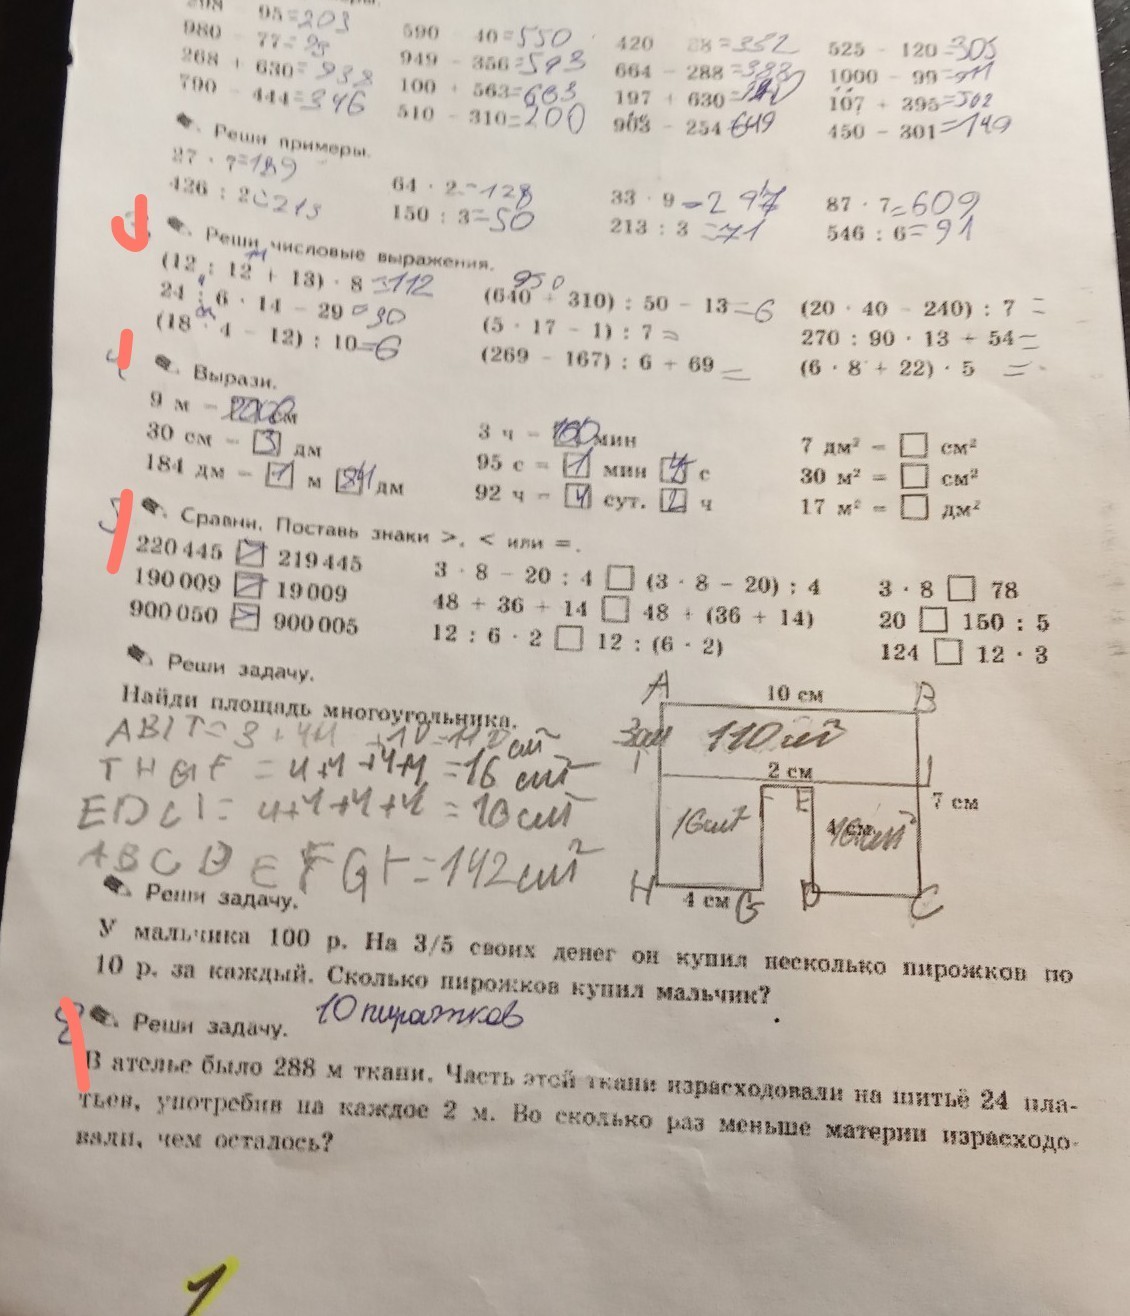 298 - 95 = 203
980 - 77 =
268 + 630 = 938
790 - 444 = 346
590 - 40 = 550
949 - 356 = 593
100 + 563 = 663
510 - 310 = 200
420 - 68 = 352
664 - 288 =
197 + 630 =
903 - 254 649
525 - 120 = 305
1000 - 99 = 911
107 + 395 = 502
450 - 301 = 149
Реши примеры.
27 · 7 = 189
426 : 2 = 213
64 · 2 = 128
150 : 3 = 50
33 · 9 = 297
213 : 3 = 71
87 · 7 = 609
546 : 6 = 91
Реши числовые выражения.
(12 : 12 + 13) · 8 = 112
24 : 6 · 14 - 29 = 30
(18 · 4 - 12) : 10 = 6
950
(640 + 310) : 50 - 13 = 6
(5 · 17 - 1) : 7 =
(269 - 167) : 6 + 69 =
(20 · 40 - 240) : 7 =
270 : 90 · 13 + 54 =
(6 · 8 + 22) · 5 =
4
Вырази.
9 м = см
30 см = 3 дм
184 дм = 1 м 84 дм
3 ч = мин
95 с = 1 мин с
92 ч = 4 сут. 2 ч
7 дм² = □ см²
30 м² = □ см²
17 м² = □ дм²
5
Сравни. Поставь знаки >, < или =.
220 445 > 219 445
190 009 > 19 009
900 050 > 900 005
3 · 8 - 20 : 4 □ (3 · 8 - 20) : 4
48 + 36 + 14 □ 48 + (36 + 14)
12 : 6 · 2 □ 12 : (6 · 2)
3 · 8 □ 78
20 □ 150 : 5
124 □ 12 · 3
Реши задачу.
Найди площадь многоугольника.
THGF = 4+4+4+4 = 16 см
EDCI = 4+4+4+4 = 16 см
ABCDEFGH = 142 см²
A
10 см
B
3см
110 см²
I
2 см
7 см
F
E
16 см²
H
4 см
G
D
C
Реши задачу.
У мальчика 100 р. На 3/5 своих денег он купил несколько пирожков по
10 р. за каждый. Сколько пирожков купил мальчик?
10 пирожков
8
Реши задачу.
В ателье было 288 м ткани. Часть этой ткани израсходовали на шитьё 24 пла-
тьев, употребив на каждое 2 м. Во сколько раз меньше материи израсходо-
вали, чем осталось?
1